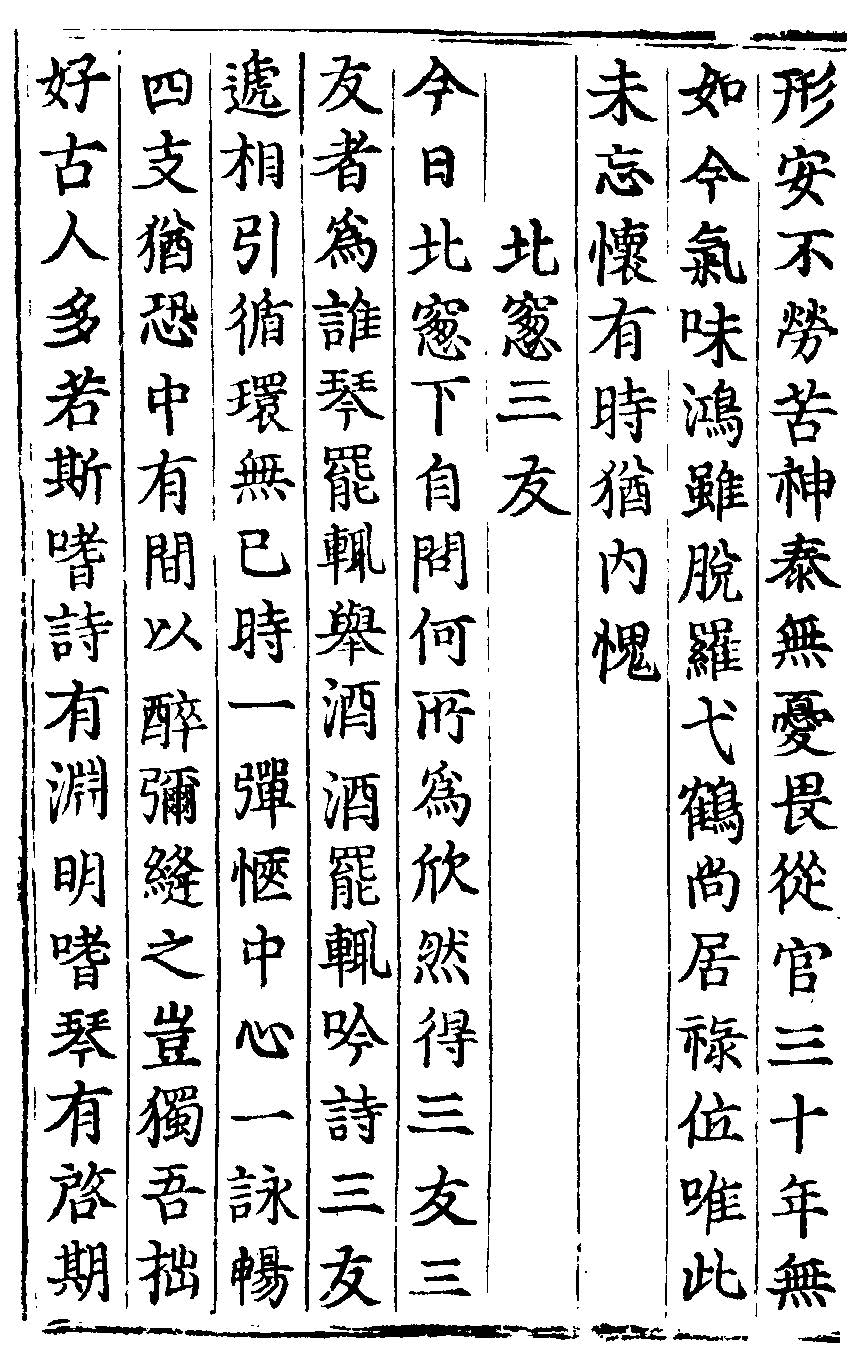 形安不勞苦神泰無憂畏從官三十年無
如今氣味鴻雖脫羅弋鶴尚居祿位唯此
未忘懷有時猶内愧
北窓三友
今日北窓下自問何所爲欣然得三友三
友者爲誰琴罷輒舉酒酒罷輒吟詩三友
遞相引循環無已時一彈愜中心一詠暢
四支猶恐中有間以醉彌縫之豈獨吾拙
好古人多若斯嗜詩有淵明嗜琴有啓期